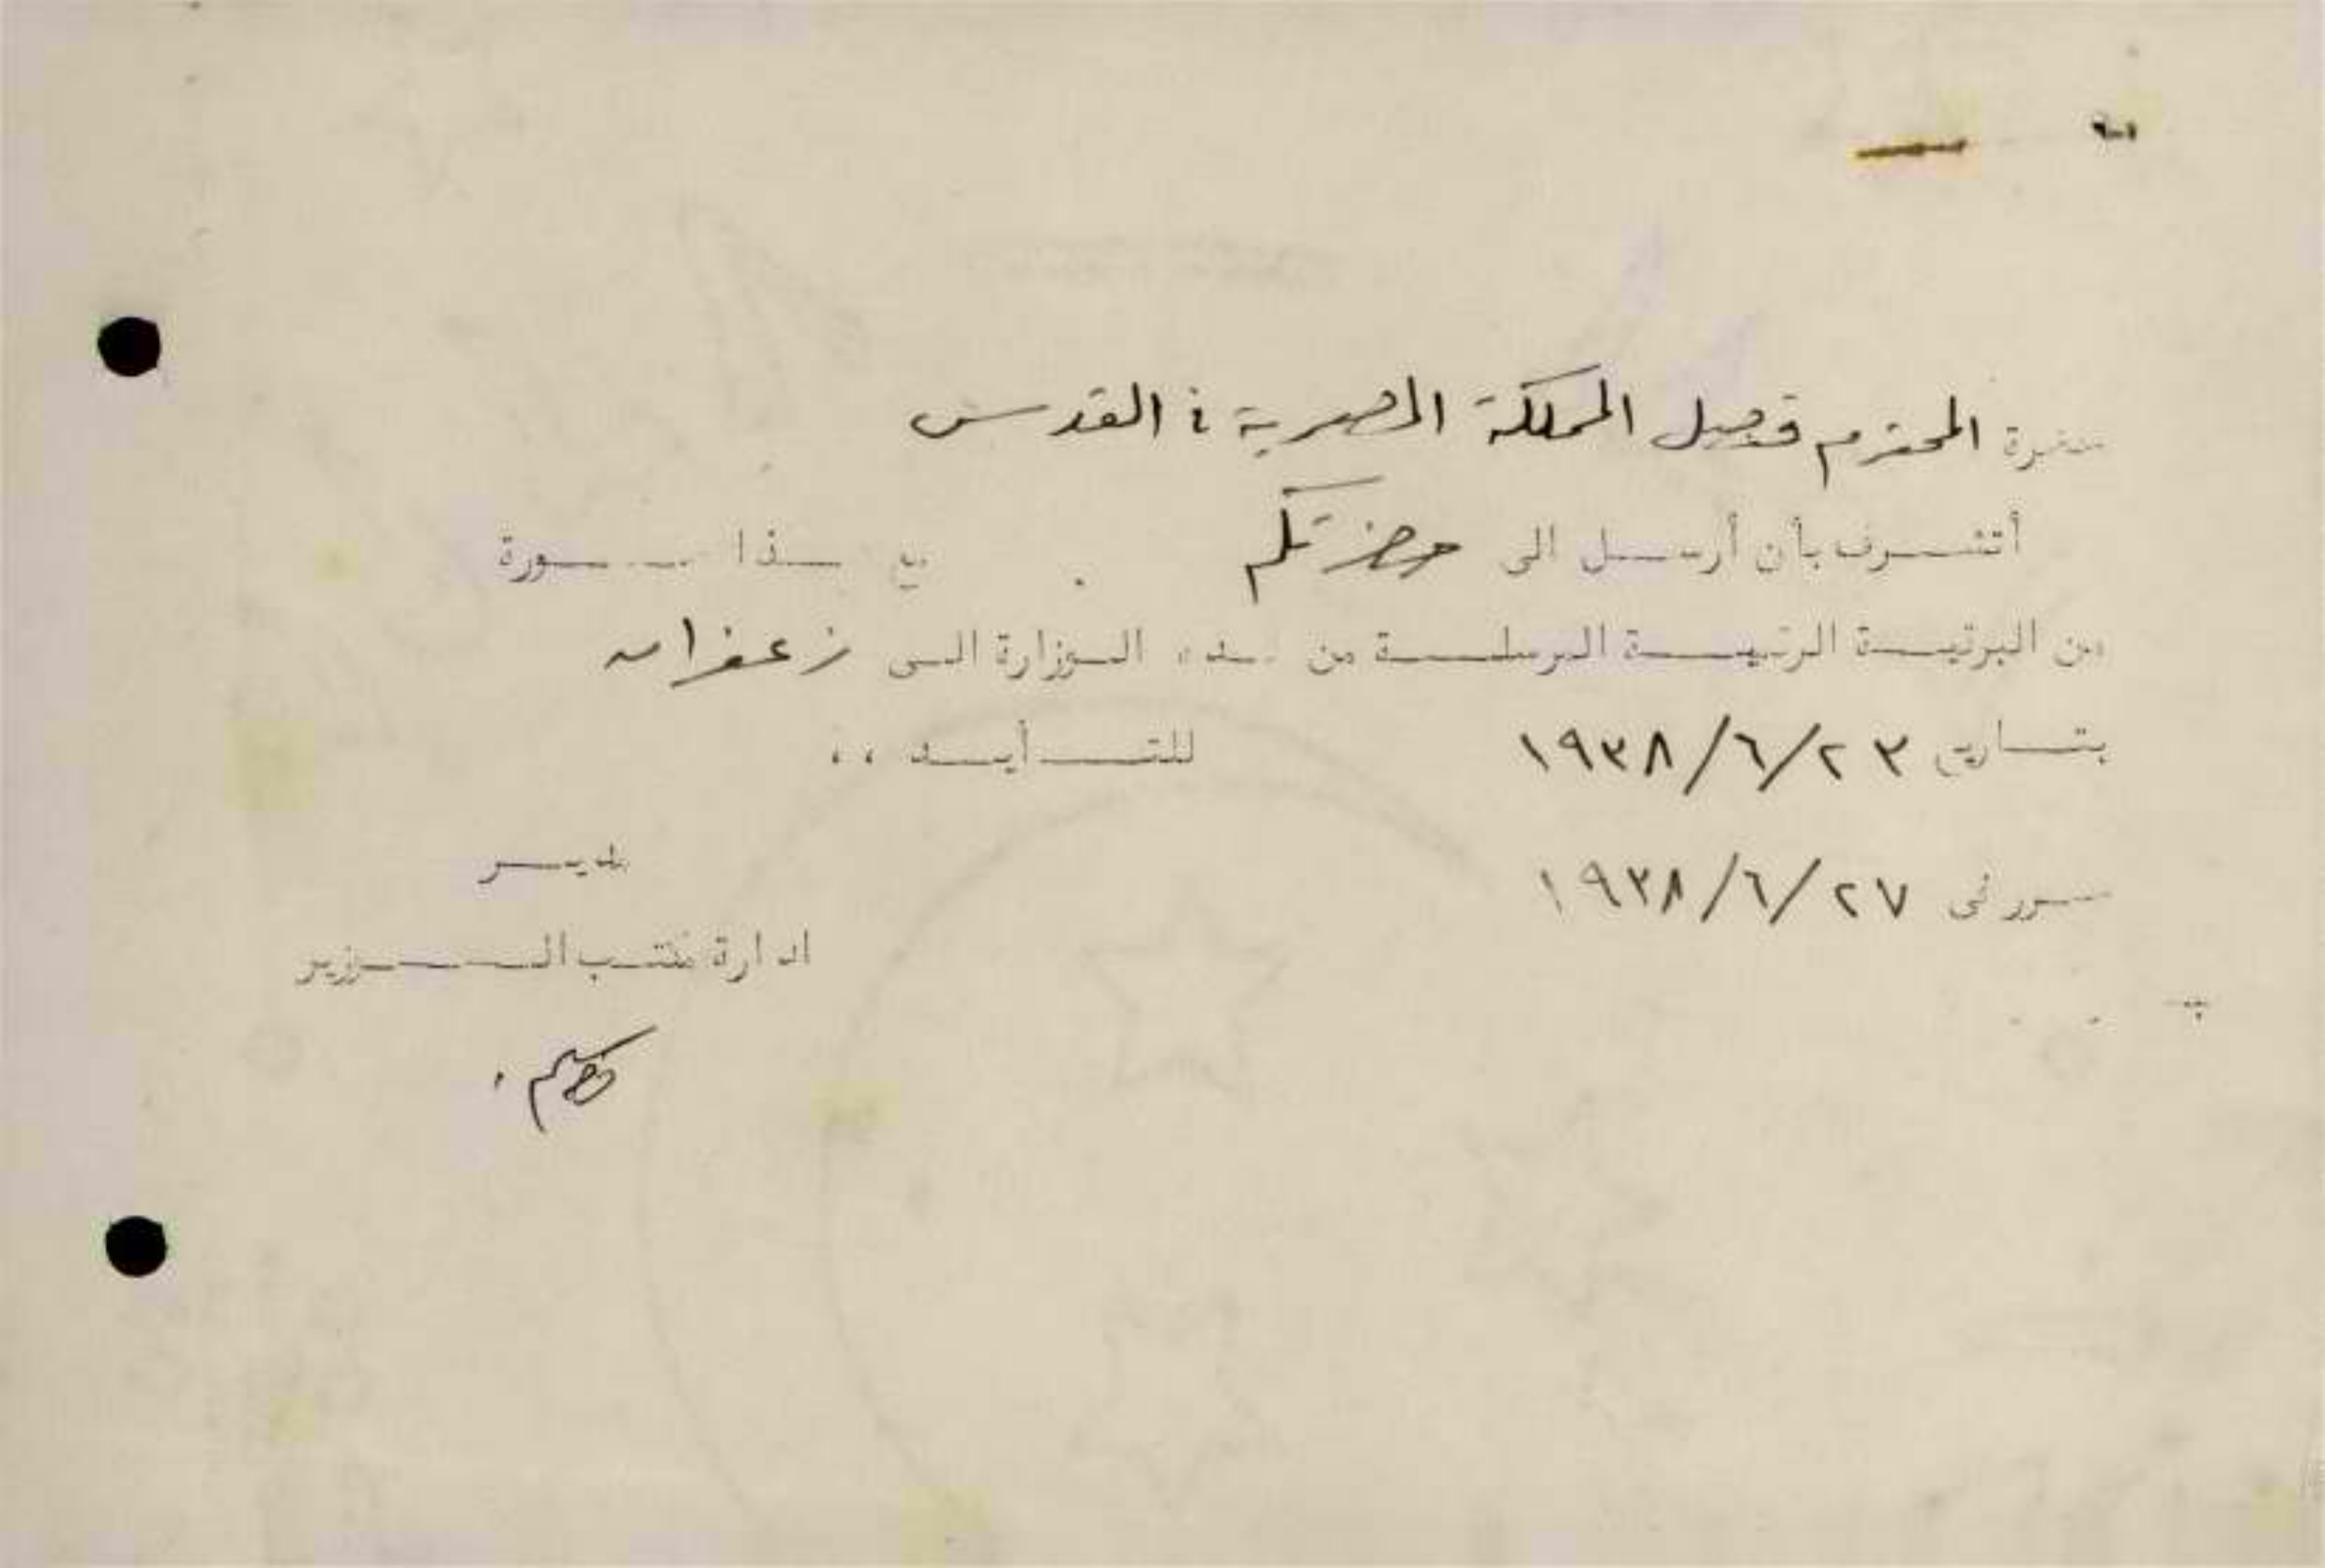 حضرة المحترم قنصل المملكة المصرية في القدس
أتشرف بأن أرسل الى حضرتكم مع هذا صورة
من البرقية الرئيسية المرسلة من هذه الوزارة الى زعفران
بتاريخ ٢٣/٦/١٩٣٨ للتأييد ،،
حرر في ٢٧/٦/١٩٣٨
مدير
ادارة مكتب الوزير